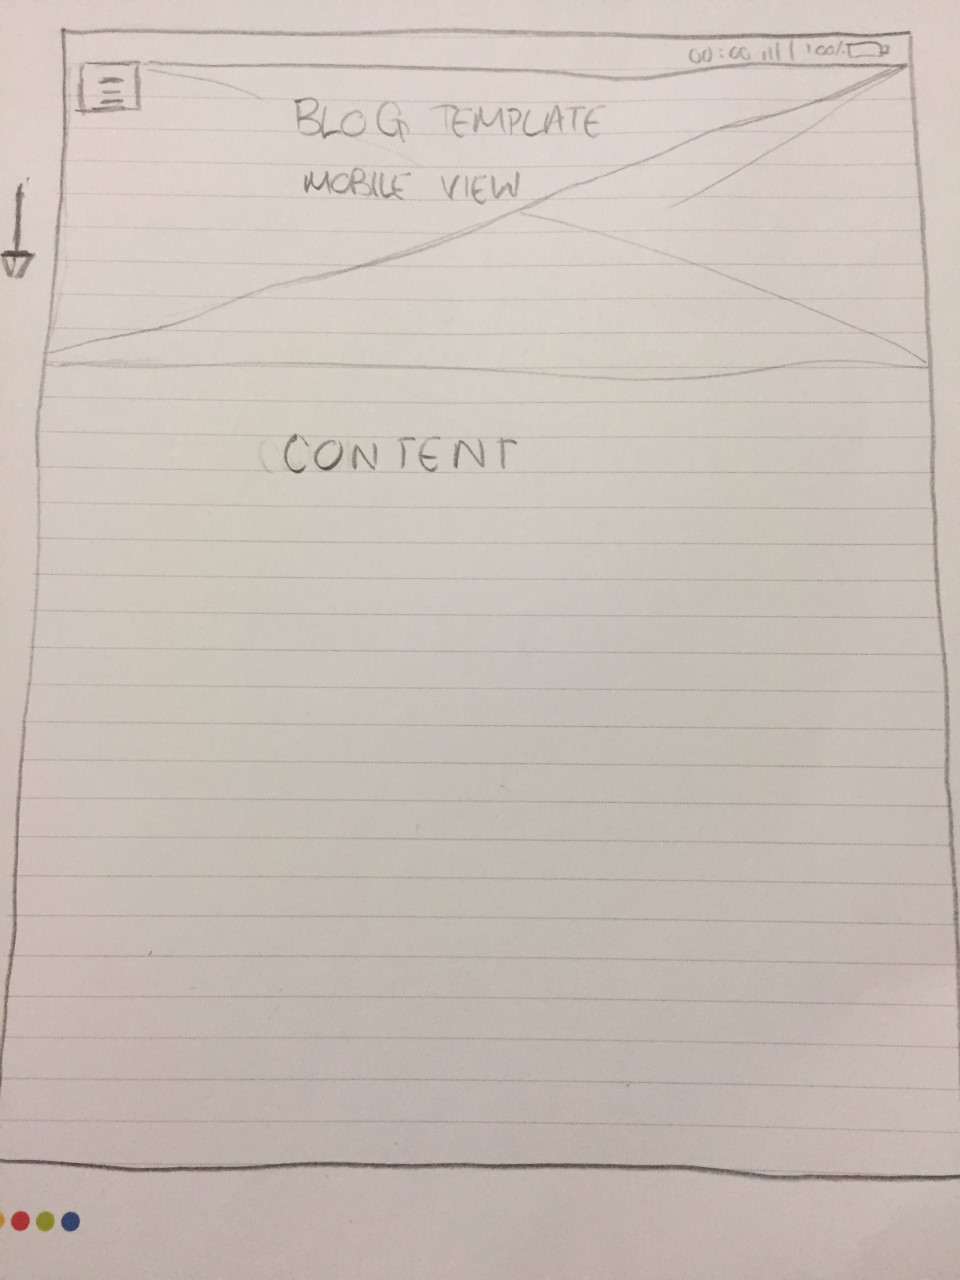 00:00 100%
BLOG TEMPLATE
MOBILE VIEW
CONTENT